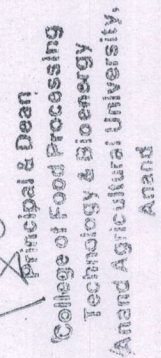 Principal & Dean
College of Food Processing
Technology & Bioenergy
Anand Agricultural University,
Anand